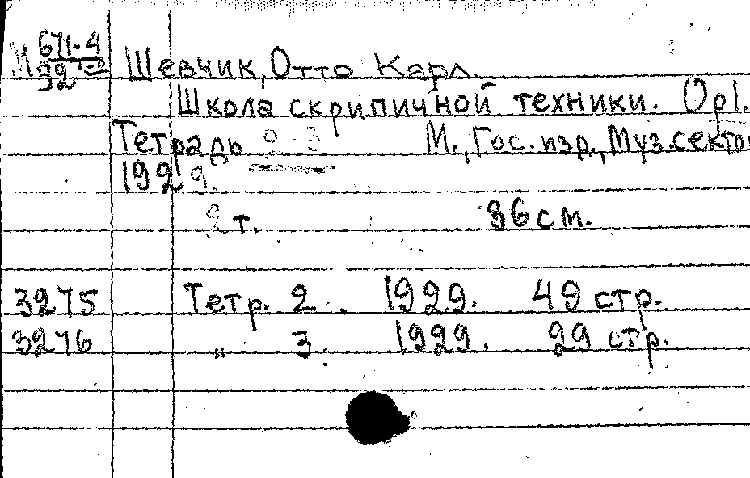 М 671-4 Шевчик, Отто Карл.
92
Школа скрипичной техники. Op1.
Тетрадь 2-3 М., Гос. изр., Муз.сектор
1929.
2 т. 36 см.
3275 Тетр. 2. 1929. 49 стр.
3276 " 3. 1929. 29 стр.